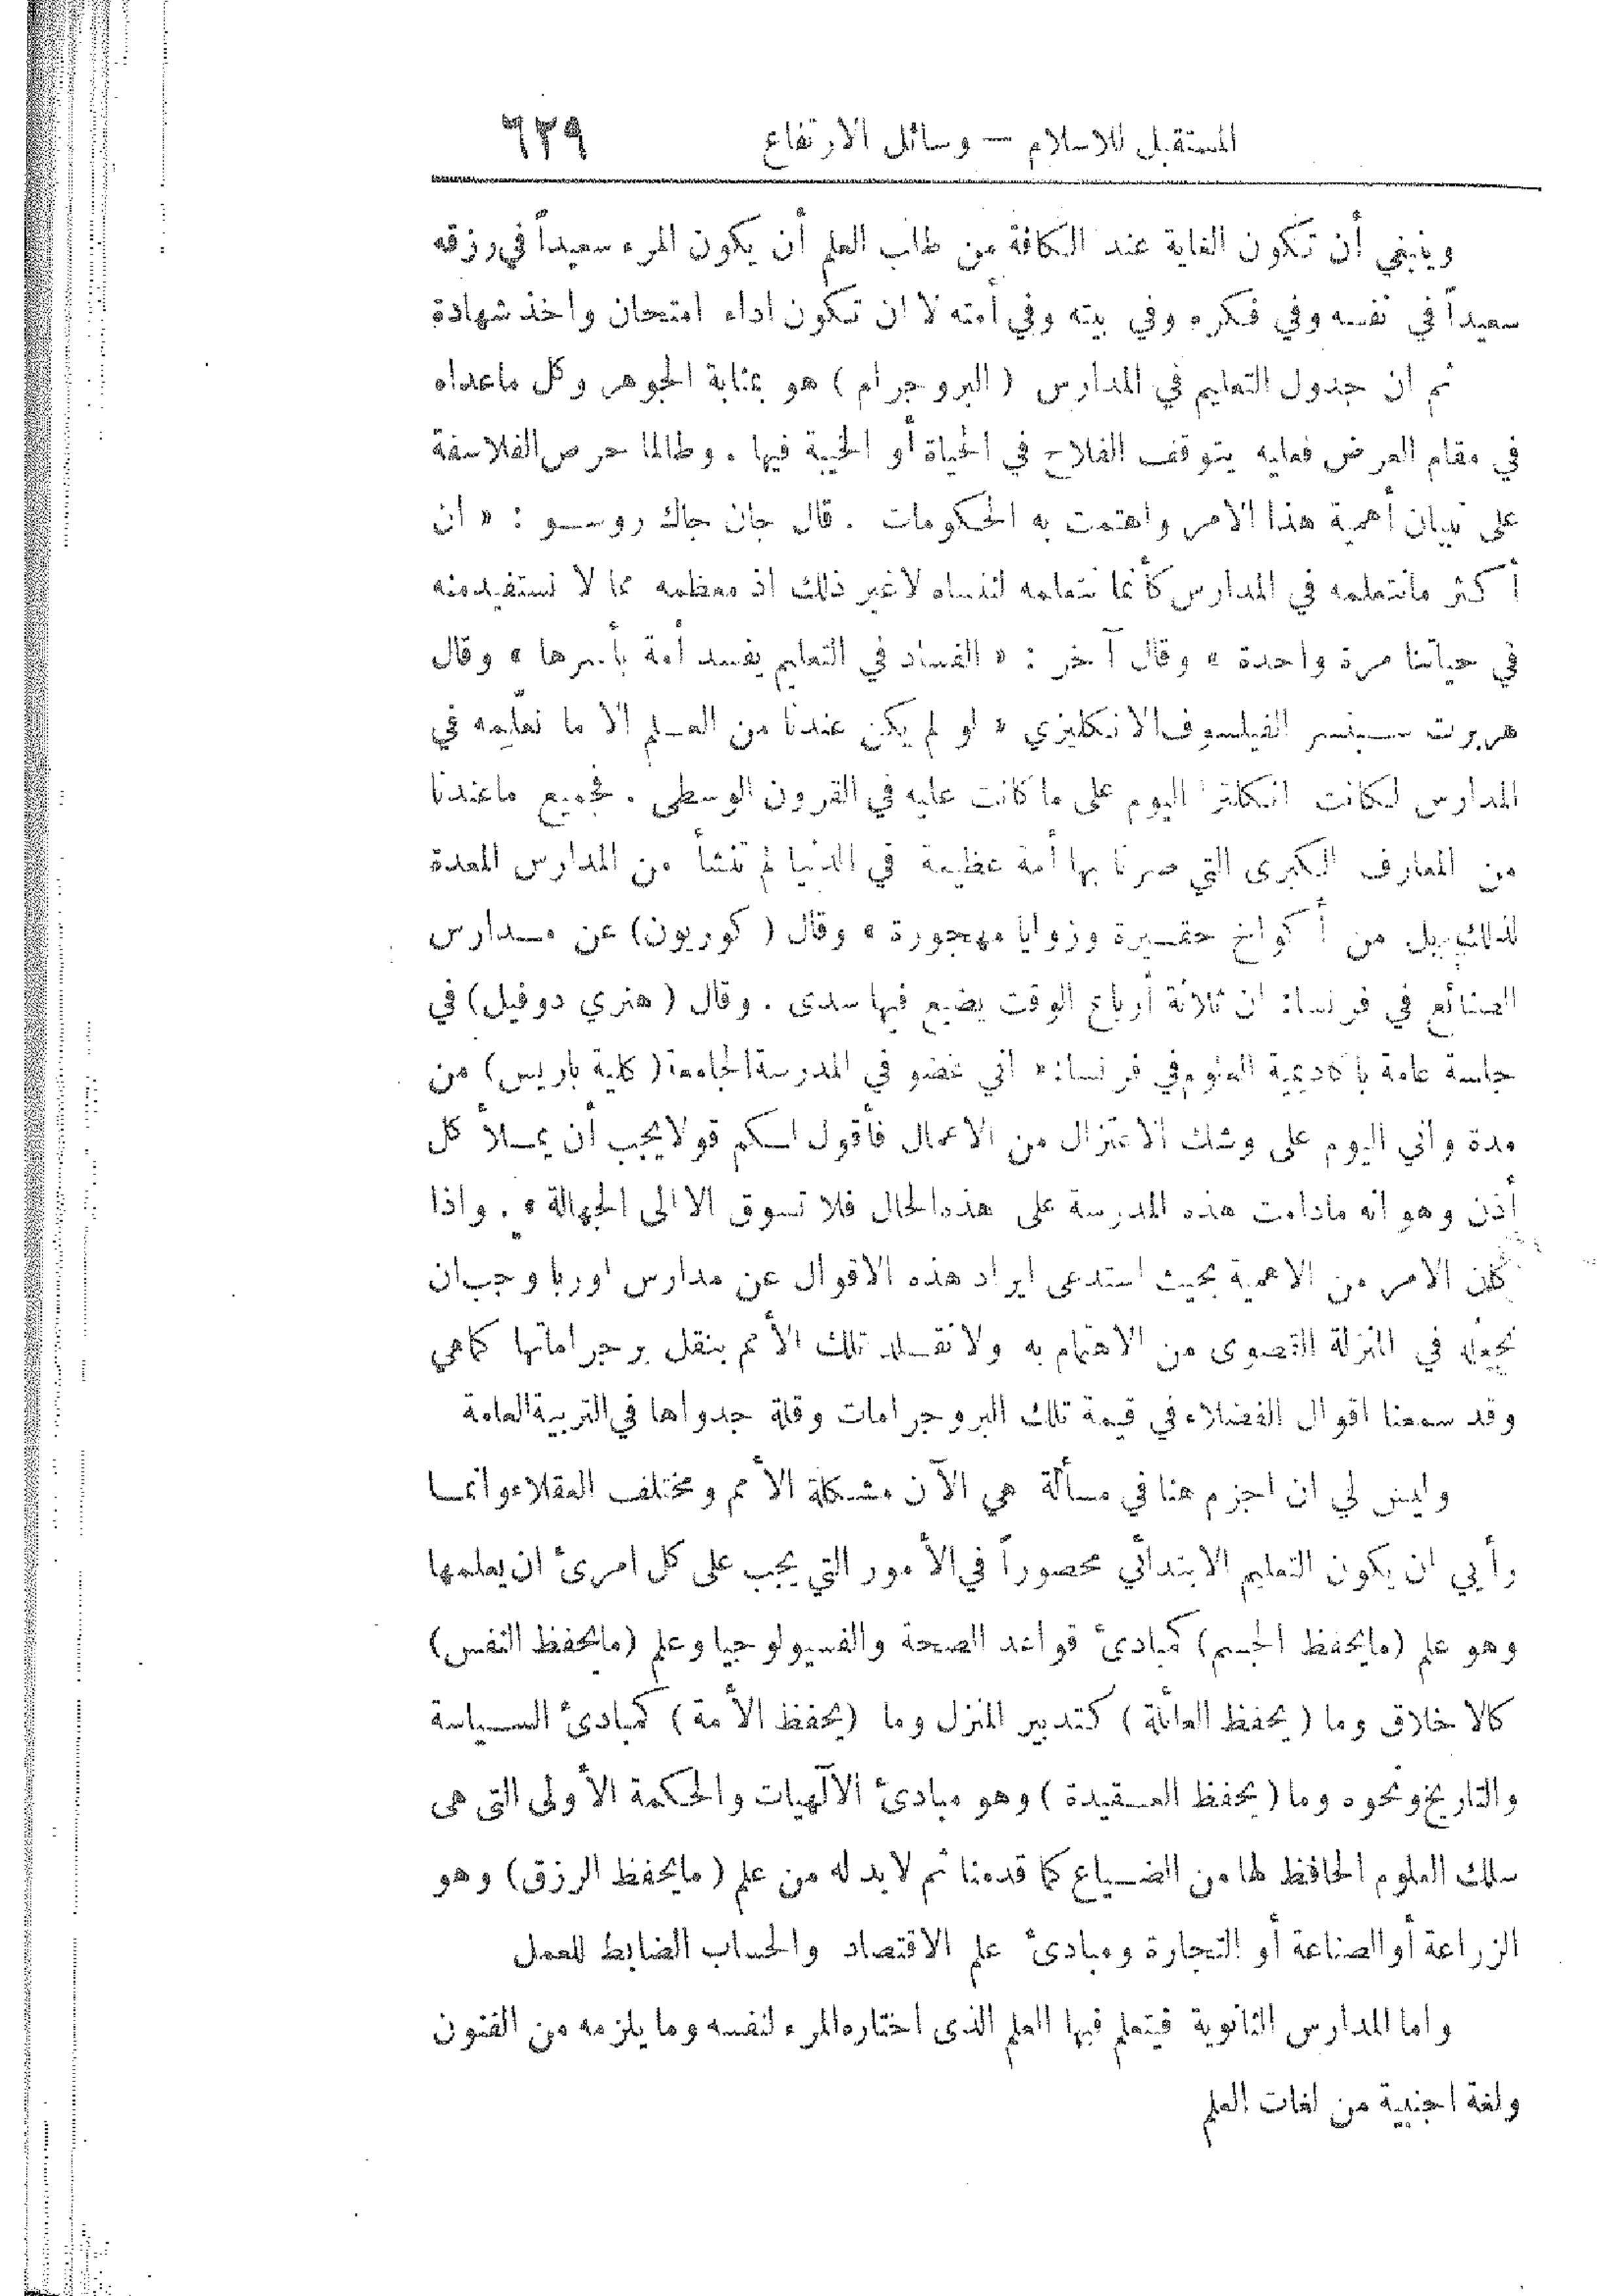 المستقبل للاسلام — وسائل الارتفاع ٦٣٩
وينبغي أن تكون الغاية عند الكافة من طلب العلم أن يكون المرء سعيداً في رزقه
سعيداً في نفسه وفي فكره وفي بيته وفي أمته لا ان تكون اداء امتحان واخذ شهادة
ثم ان جدول التعليم في المدارس ( البروجرام ) هو بمثابة الجوهر وكل ماعداه
في مقام العرض فعليه يتوقف الفلاح في الحياة أو الخيبة فيها . وطالما حرص الفلاسفة
على تبيان أهمية هذا الامر واهتمت به الحكومات . قال جان جاك روسو : « ان
أكثر مانتعلمه في المدارس كأنما نتعلمه لننساه لاغير ذلك اذ معظمه مما لا نستفيد منه
في حياتنا مرة واحدة » وقال آخر : « الفساد في التعليم يفسد أمة بأسرها » وقال
هربرت سبنسر الفيلسوف الانكليزي « لو لم يكن عندنا من العلم الا ما نعلّمه في
المدارس لكانت انكلترا اليوم على ما كانت عليه في القرون الوسطى . فجميع ماعندنا
من المعارف الكبرى التي صرنا بها أمة عظيمة في الدنيا لم تنشأ من المدارس المعدة
لذلك بل من أكواخ حقيرة وزوايا مهجورة » وقال ( كوريون ) عن مدارس
الصنائع في فرنسا: ان ثلاثة أرباع الوقت يضيع فيها سدى . وقال ( هنري دوفيل ) في
جلسة عامة بأكاديمية العلوم في فرنسا: « اني عضو في المدرسة الجامعة ( كلية باريس ) من
مدة واني اليوم على وشك الاعتزال من الاعمال فأقول لكم قولا يجب أن يملأ كل
أذن وهو انه مادامت هذه المدرسة على هذه الحال فلا تسوق الا الى الجهالة » . واذا
كان الامر من الاهمية بحيث استدعى ايراد هذه الاقوال عن مدارس اوربا وجب ان
نجعله في المنزلة القصوى من الاهتمام به ولا نقلد تلك الأمم بنقل برجراماتها كماهي
وقد سمعنا اقوال الفضلاء في قيمة تلك البروجرامات وقلة جدواها في التربية العامة
وليس لي ان اجزم هنا في مسألة هي الآن مشكلة الأمم ومختلف العقلاء وانما
رأيي ان يكون التعليم الابتدائي محصوراً في الأمور التي يجب على كل امرئ ان يعلمها
وهو علم (مايحفظ الجسم) كمبادئ قواعد الصحة والفسيولوجيا وعلم (مايحفظ النفس)
كالاخلاق وما ( يحفظ العائلة ) كتدبير المنزل وما ( يحفظ الأمة ) كمبادئ السياسة
والتاريخ ونحوه وما ( يحفظ العقيدة ) وهو مبادئ الآلهيات والحكمة الأولى التى هى
سلك العلوم الحافظ لها من الضياع كما قدمنا ثم لابد له من علم ( مايحفظ الرزق ) وهو
الزراعة أو الصناعة أو التجارة ومبادئ علم الاقتصاد والحساب الضابط للعمل
واما المدارس الثانوية فيتعلم فيها العلم الذى اختاره المرء لنفسه وما يلزمه من الفنون
ولغة اجنبية من لغات العلم